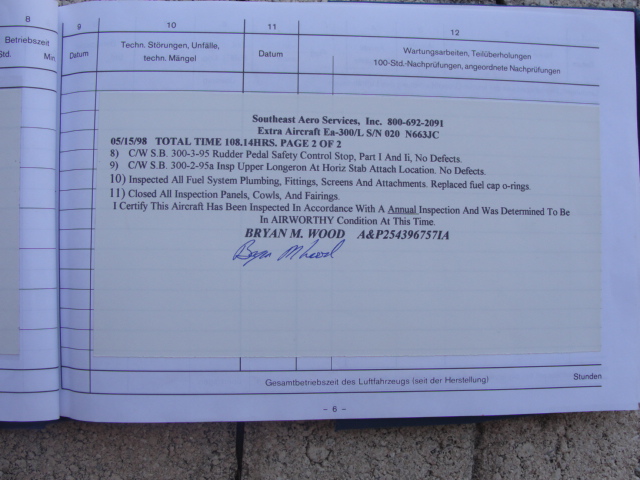 8
9
10
11
12
Betriebszeit
Std. Min.
Datum
Techn. Störungen, Unfälle,
techn. Mängel
Datum
Wartungsarbeiten, Teilüberholungen
100-Std.-Nachprüfungen, angeordnete Nachprüfungen
Southeast Aero Services, Inc. 800-692-2091
Extra Aircraft Ea-300/L S/N 020 N663JC
05/15/98 TOTAL TIME 108.14HRS. PAGE 2 OF 2
8) C/W S.B. 300-3-95 Rudder Pedal Safety Control Stop, Part I And Ii, No Defects.
9) C/W S.B. 300-2-95a Insp Upper Longeron At Horiz Stab Attach Location. No Defects.
10) Inspected All Fuel System Plumbing, Fittings, Screens And Attachments. Replaced fuel cap o-rings.
11) Closed All Inspection Panels, Cowls, And Fairings.
I Certify This Aircraft Has Been Inspected In Accordance With A Annual Inspection And Was Determined To Be
In AIRWORTHY Condition At This Time.
BRYAN M. WOOD A&P254396757IA
Bryan M Wood
Gesamtbetriebszeit des Luftfahrzeugs (seit der Herstellung)
Stunden
– 6 –